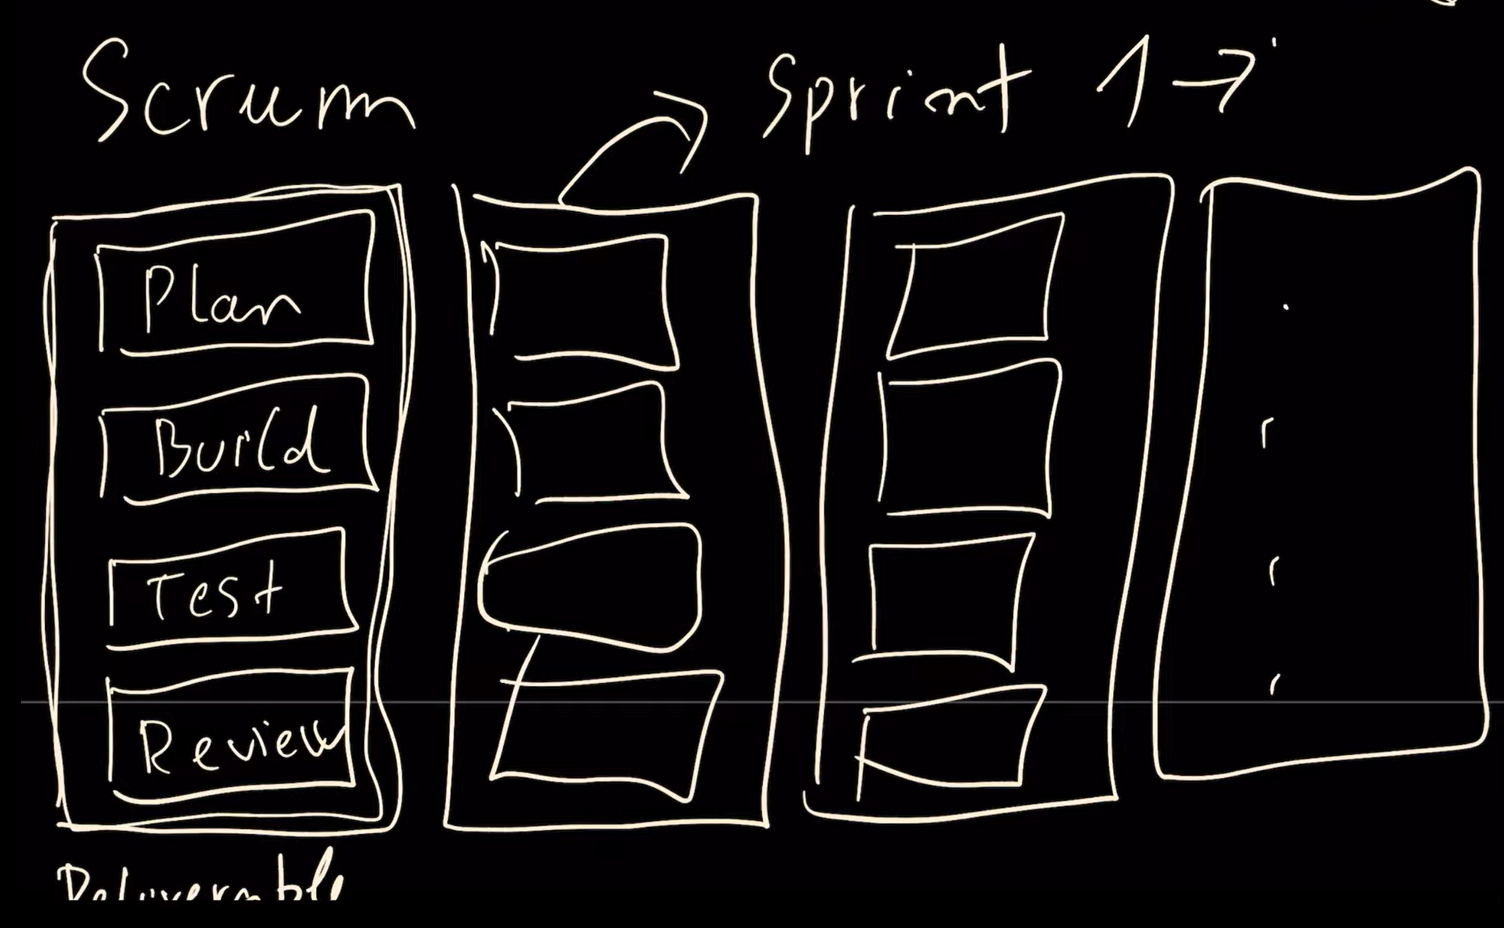 Scrum
Sprint 1 →
Plan
Build
Test
Review
Deliverable